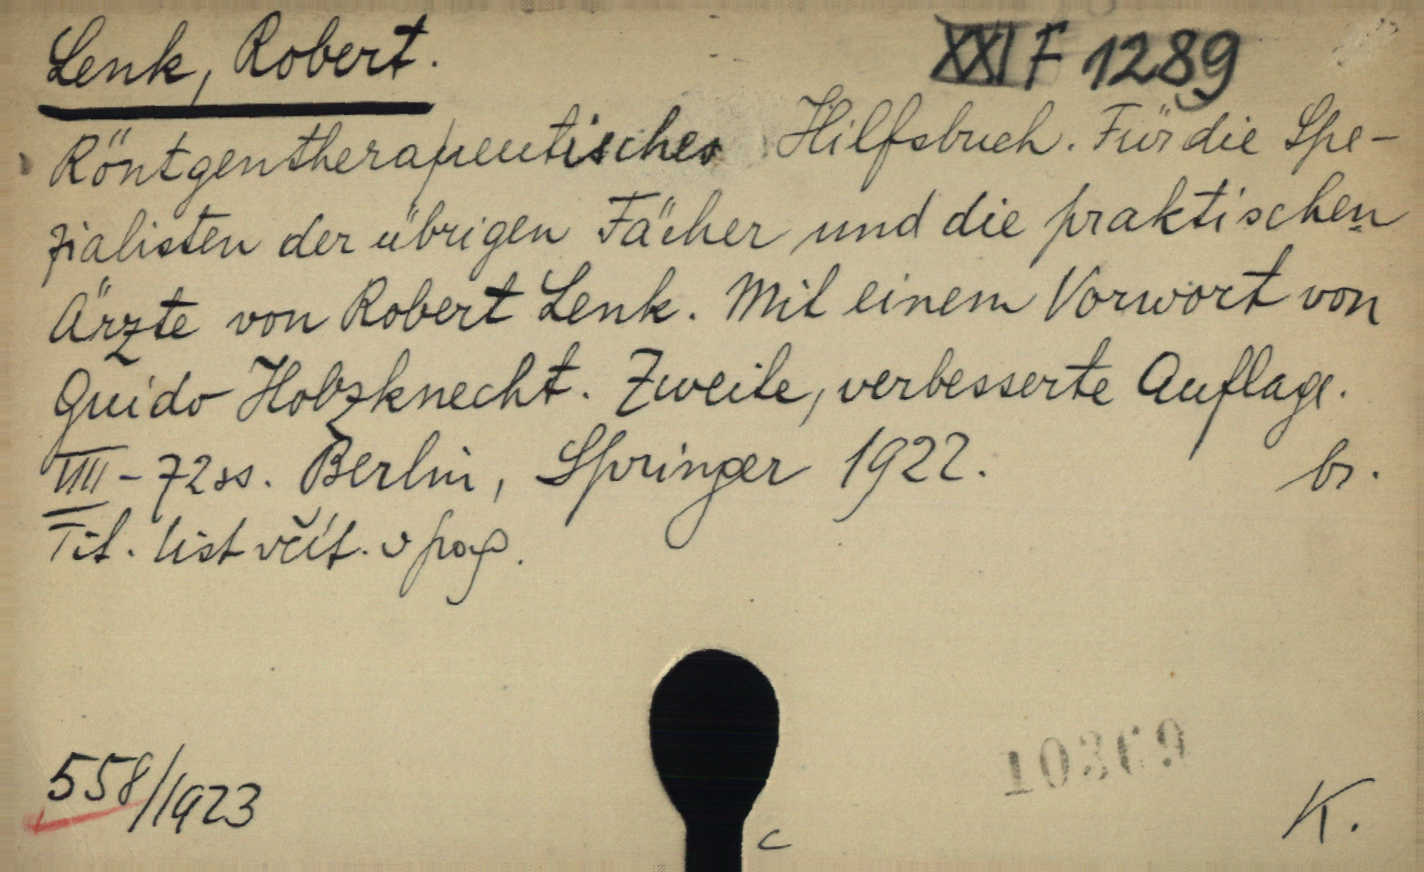 Lenk, Robert.
XXI F 1289
Röntgentherapeutisches Hilfsbuch. Für die Spe-
zialisten der übrigen Fächer und die praktischen
Ärzte von Robert Lenk. Mit einem Vorwort von
Guido Holzknecht. Zweite, verbesserte Auflage.
VIII - 72 ss. Berlin, Springer 1922. br.
Tit. list včít. v pag.
558/1923
10369
K.
c